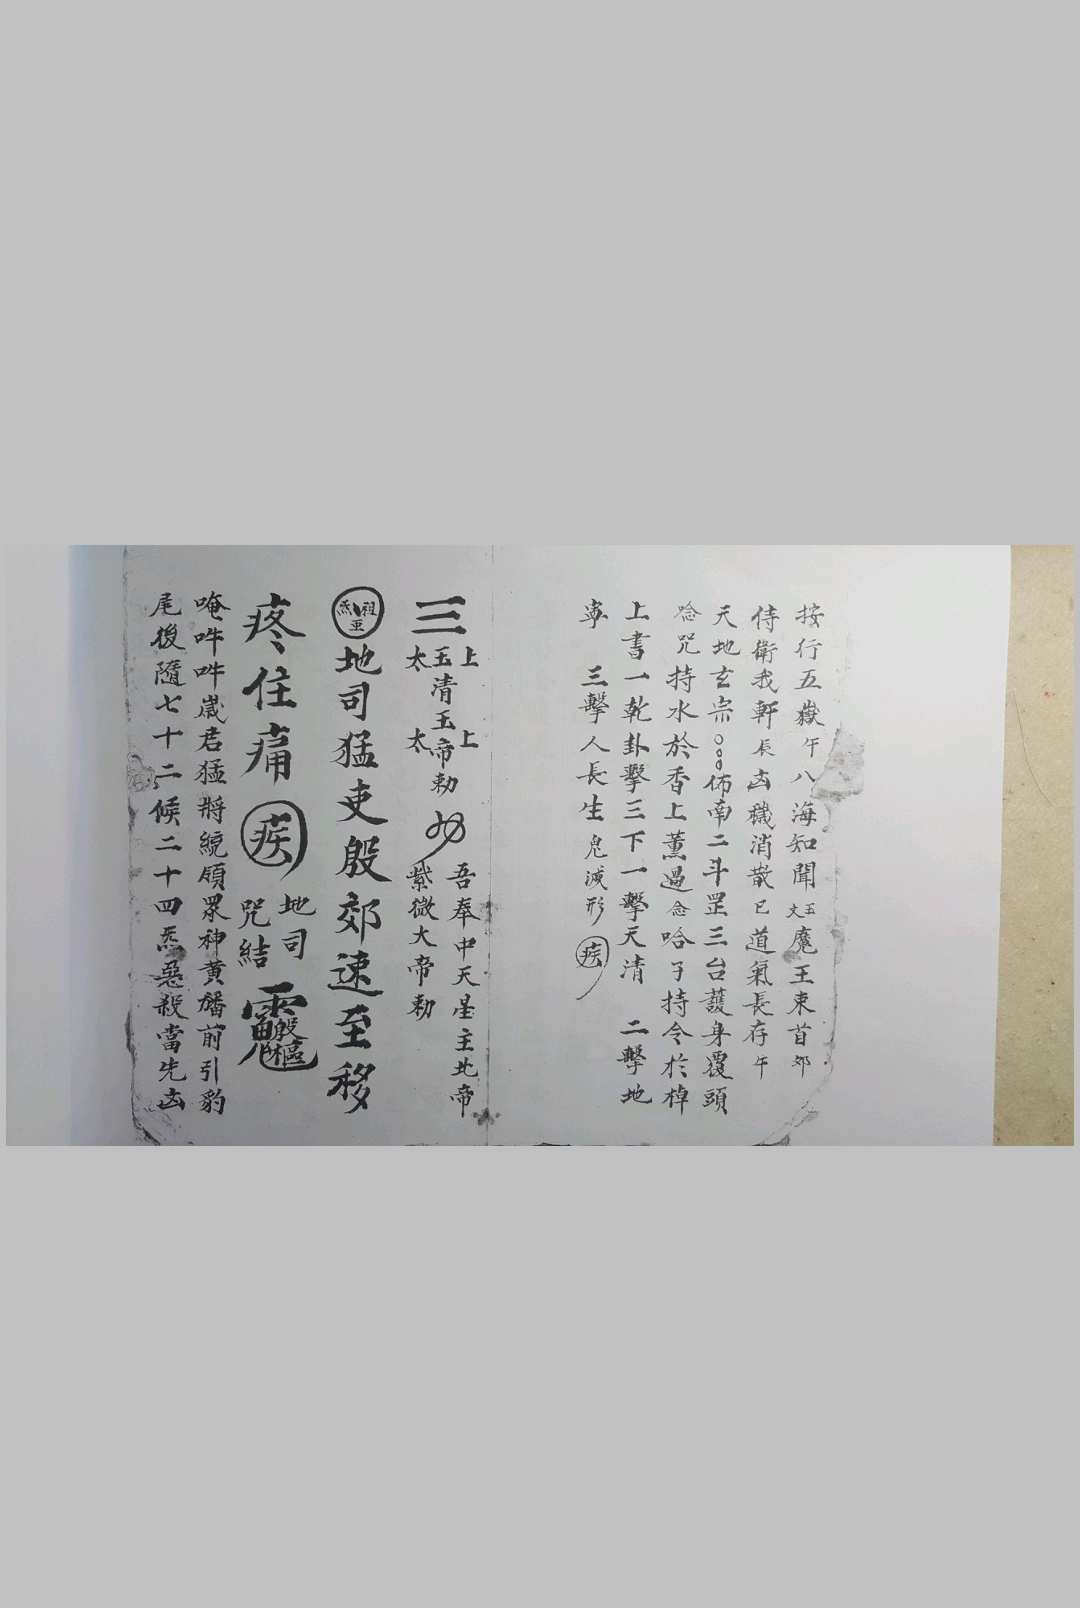 按行五嶽午八海知聞玉文魔王束首卯
侍衛我軒辰凶穢消散巳道氣長存午
天地玄宗○○○佈南二斗罡三台護身覆頭
念咒持水於香上薰過念哈子持令於棹
上書一乾卦擊三下一擊天清 二擊地
寧 三擊人長生鬼滅形 疾
三
上玉清玉帝勅
上
太
太
吾奉中天星主北帝
紫微大帝勅
地司猛吏殷郊速至移
疼住痛 疾
地司
咒結
殷樞
唵吽吽歲君猛將統領眾神黃旛前引豹
尾後隨七十二候二十四炁惡殺當先凶